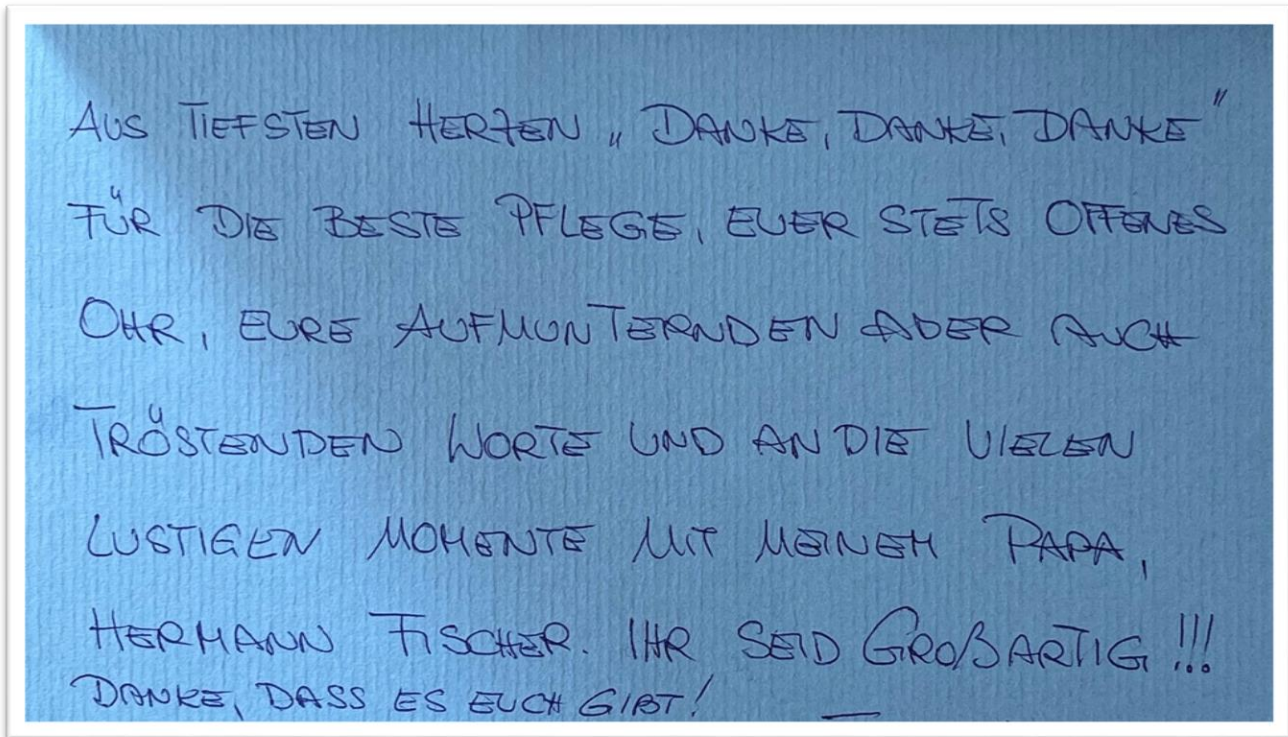 AUS TIEFSTEN HERZEN „DANKE, DANKE, DANKE"
FÜR DIE BESTE PFLEGE, EUER STETS OFFENES
OHR, EURE AUFMUNTERNDEN ABER AUCH
TRÖSTENDEN WORTE UND AN DIE VIELEN
LUSTIGEN MOMENTE MIT MEINEM PAPA,
HERMANN FISCHER. IHR SEID GROßARTIG!!!
DANKE, DASS ES EUCH GIBT!